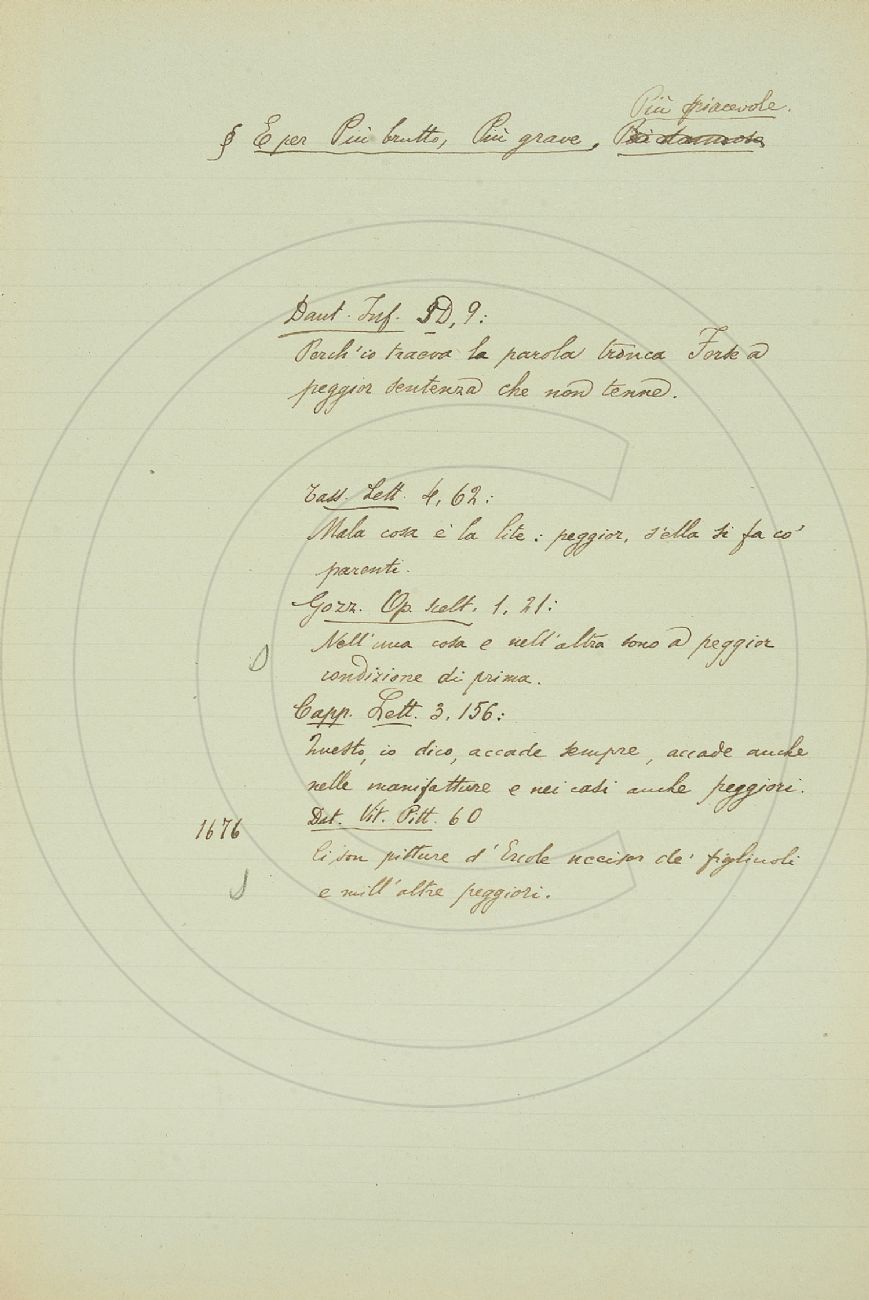 Più piacevole.
§ E per Più brutto, Più grave, Più dannoso
Dant. Inf. D, 9:
Perch'io traeva la parola tronca Forse a
peggior sentenza che non tenne.
Tass. Lett. 4, 62:
Mala cosa è la lite: peggior, s'ella si fa co'
parenti.
Gozz. Op. scelt. 1, 21:
Nell'una cosa e nell'altra sono a peggior
condizione di prima.
Capp. Lett. 3, 156:
Questo, io dico, accade sempre, accade anche
nelle manifatture e nei casi anche peggiori.
1676 Dat. Vit. Pitt. 60
Ci son pitture d'Ercole uccisor de' figliuoli
e mill'altre peggiori.